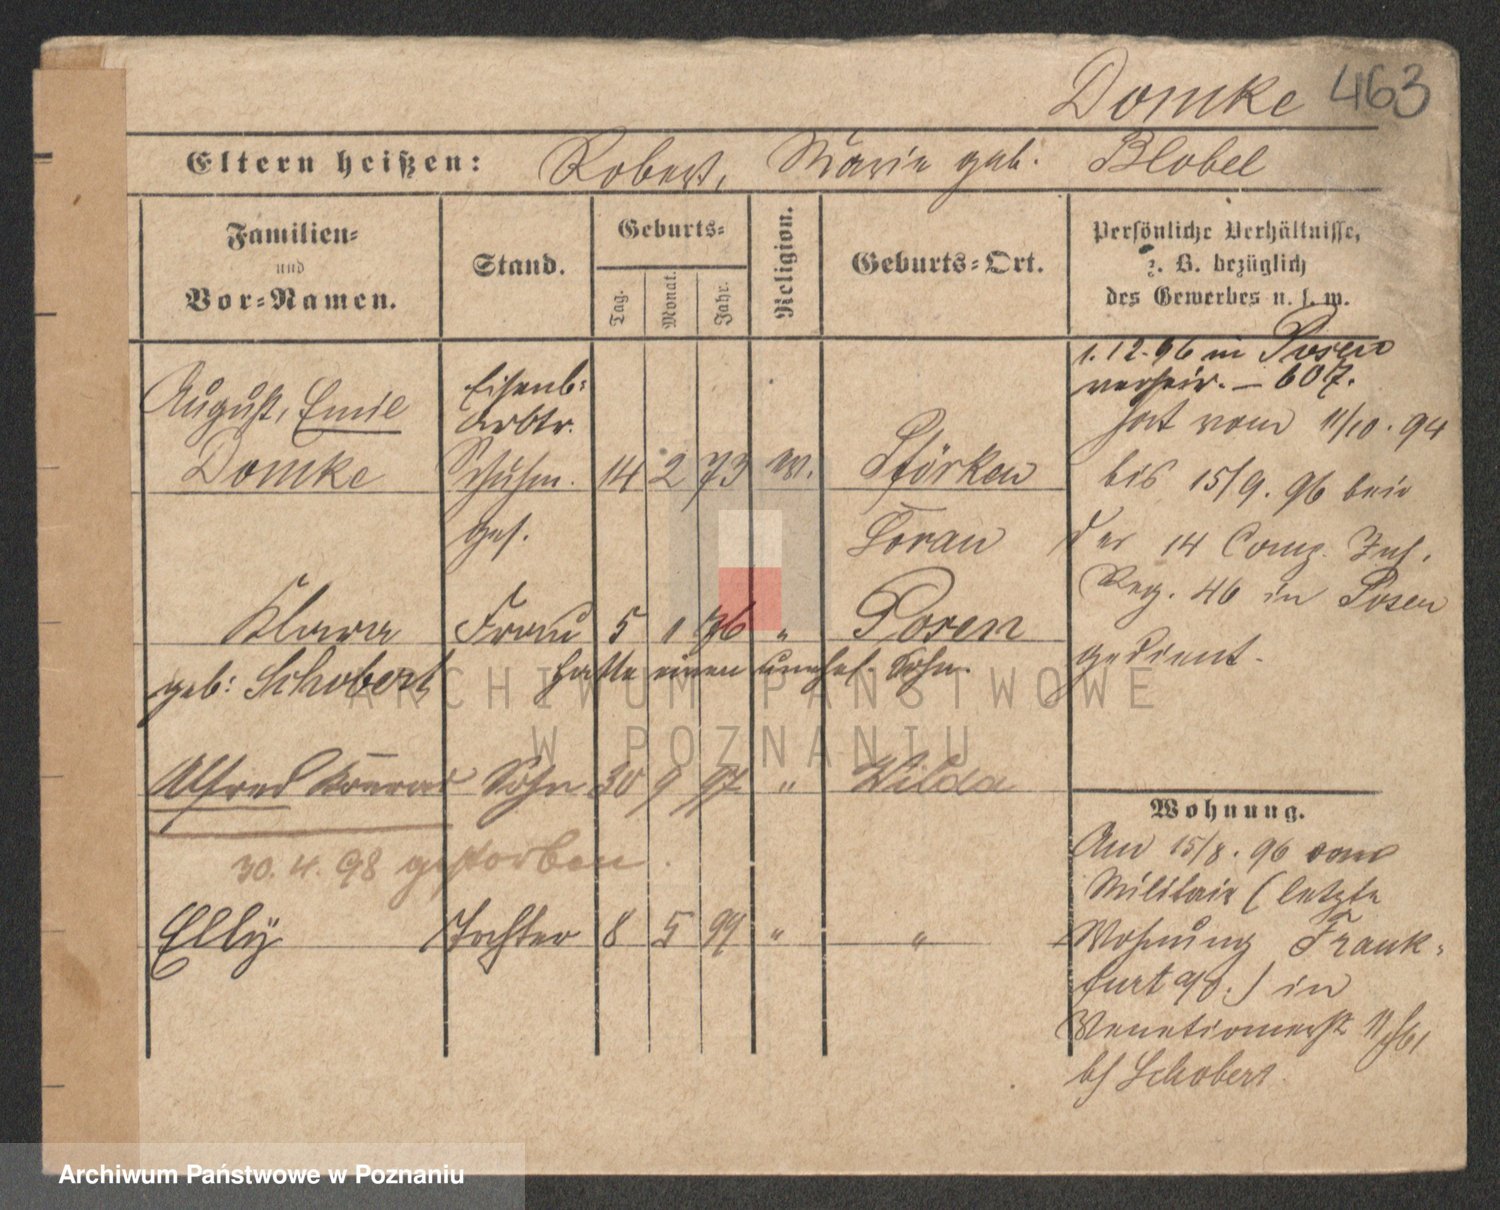 Domke 463
Eltern heißen: Robert, Marie geb. Blobel
Familien-
und
Vor-Namen.
Stand.
Geburts-
Tag. Monat. Jahr.
Religion.
Geburts-Ort.
Persönliche Verhältnisse,
z. B. bezüglich
des Gewerbes u. s. w.
1.12.96 in Posen
verheir. – 607.
August, Emil Eisenb:
Arbtr.
Domke Schuhm. 14 2 73
ges.
Klara Frau 5 1 76 " Posen
geb: Schobert hatte einen unehel. Sohn.
Alfred Konrad Sohn 30 9 97 " Wilda
30.4.98 gestorben.
Elly Tochter 8 5 99 " "
hat vom 11/10. 94
bis 15/9. 96 bei
der 14 Comp. Inf.
Reg. 46 in Posen
gedient.
Wohnung.
Am 15/8. 96 vom
Militair (letzte
Wohnung Frank-
furt a/O.) in
Schobert
ARCHIWUM PAŃSTWOWE
W POZNANIU
Archiwum Państwowe w Poznaniu